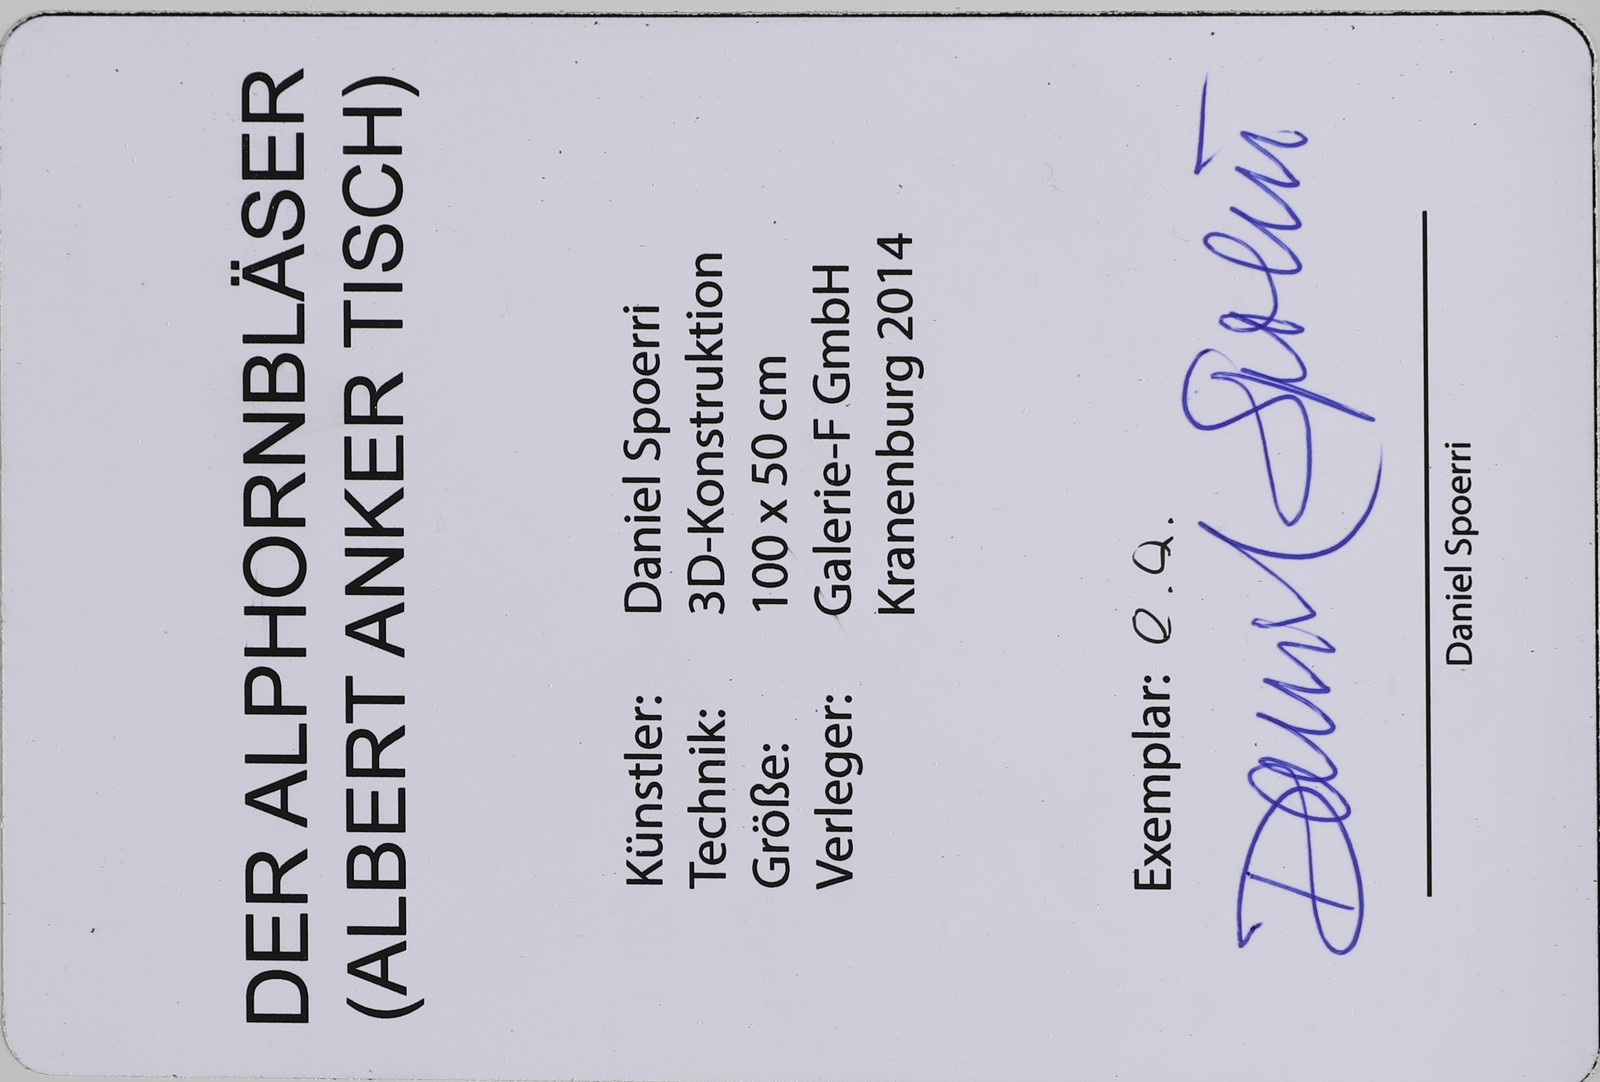 DER ALPHORNBLÄSER
(ALBERT ANKER TISCH)
Künstler: Daniel Spoerri
Technik: 3D-Konstruktion
Größe: 100 x 50 cm
Verleger: Galerie-F GmbH
Kranenburg 2014
Exemplar: e.a.
Daniel Spoerri
Daniel Spoerri